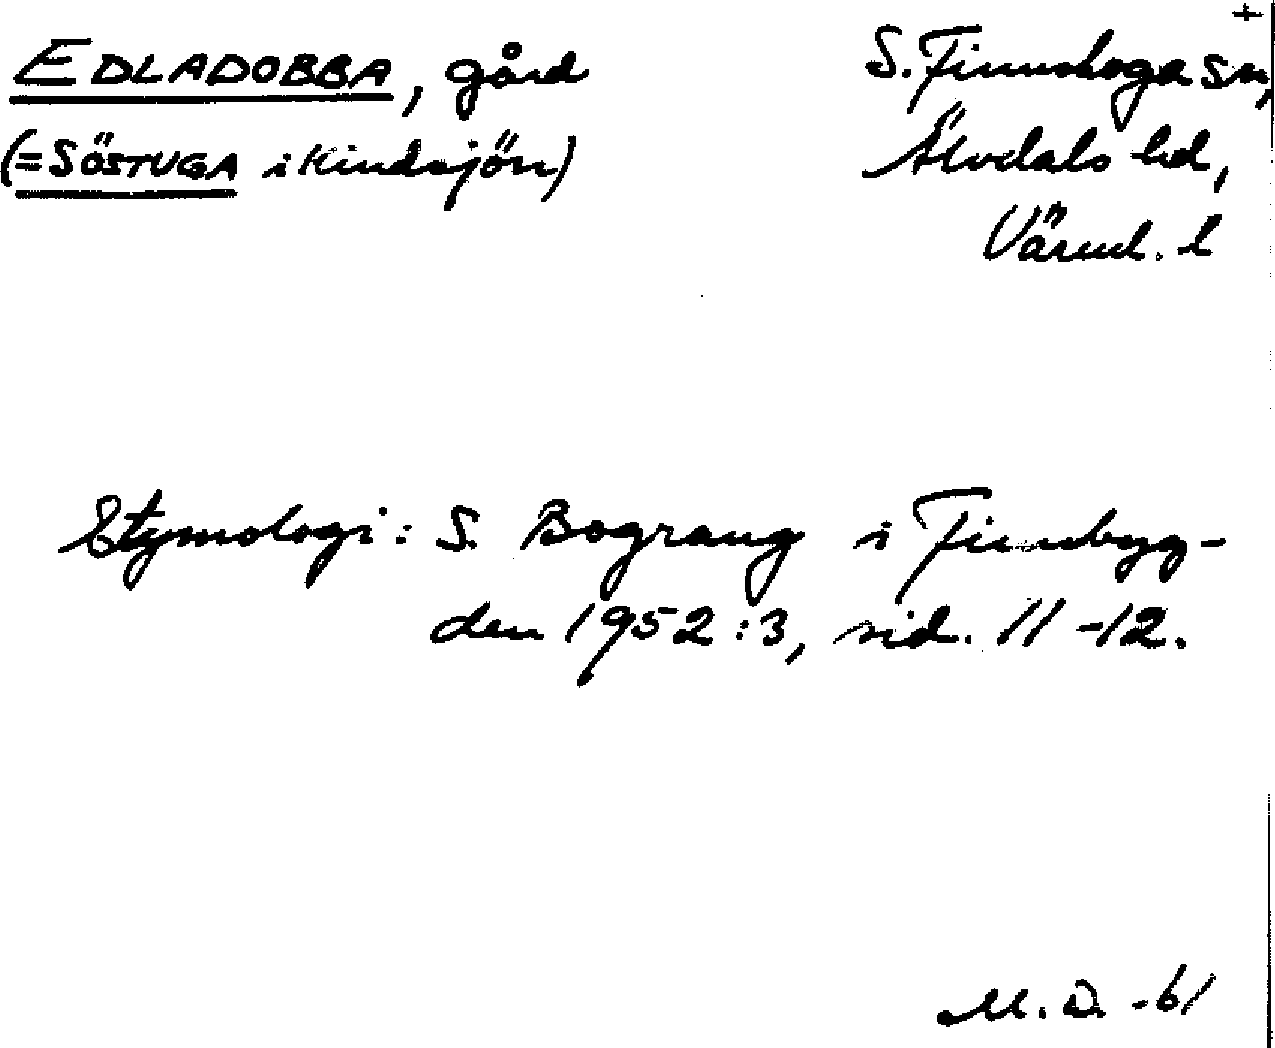 EDLADOBBA, gård
(=SÖSTUGA i Kindsjön)
S. Finnskoga sn,
Älvdals hd,
Värml. l
Etymologi: S. Bograng i Finnbyg-
den 1952:3, sid. 11-12.
M.D. -61